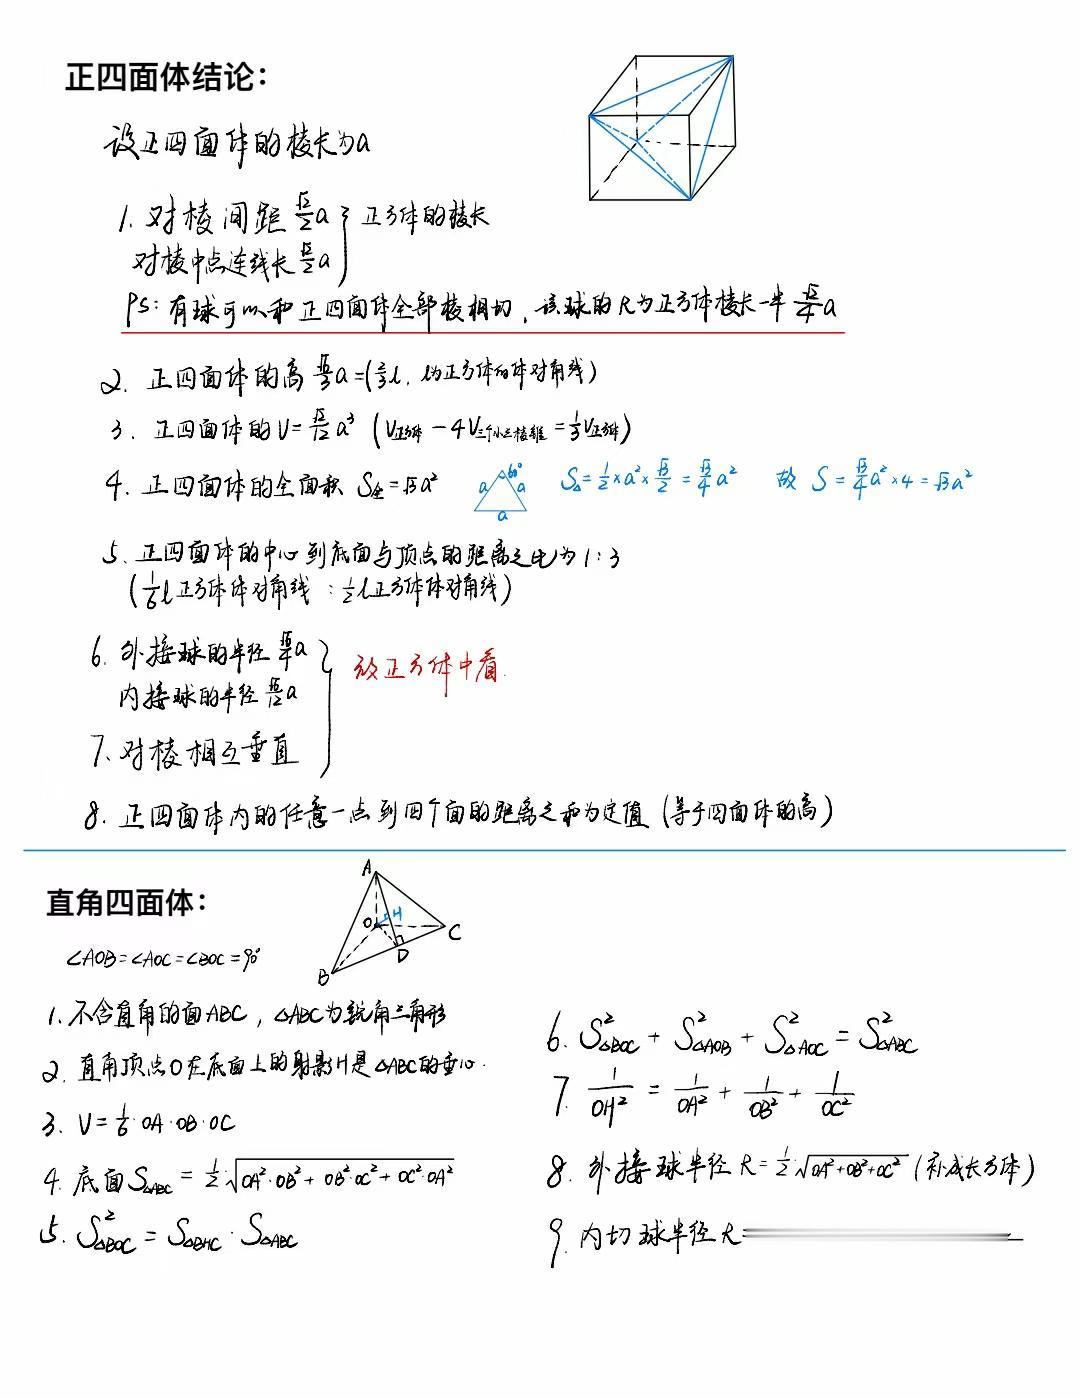 正四面体结论:
设正四面体的棱长为a
1. 对棱间距 √2/2 a } 正方体的棱长
对棱中点连线长 √2/2 a
PS: 有球可以和正四面体全部棱相切, 该球的R为正方体棱长一半 √2/4 a
2. 正四面体的高 √6/3 a = (2/3 l, l为正方体的体对角线)
3. 正四面体的V = √2/12 a³ (V正方体 - 4V三个小三棱锥 = 1/3 V正方体)
4. 正四面体的全面积 S全 = √3a²
60°
a a
a
S△ = 1/2 × a² × √3/2 = √3/4 a² 故 S = √3/4 a² × 4 = √3a²
5. 正四面体的中心到底面与顶点的距离之比为 1:3
(1/6 l正方体体对角线 : 1/2 l正方体体对角线)
6. 外接球的半径 √6/4 a
内接球的半径 √6/12 a
放正方体中看.
7. 对棱相互垂直
8. 正四面体内的任意一点到四个面的距离之和为定值 (等于四面体的高)
直角四面体:
A
O H
C
D
B
∠AOB=∠AOC=∠BOC=90°
1. 不含直角的面ABC, △ABC为锐角三角形
2. 直角顶点O在底面上的射影H是△ABC的垂心.
3. V = 1/6·OA·OB·OC
4. 底面S△ABC = 1/2 √(OA²·OB²+OB²·OC²+OC²·OA²)
5. S²△BOC = S△BHC · S△ABC
6. S²△BOC + S²△AOB + S²△AOC = S²△ABC
7. 1/OH² = 1/OA² + 1/OB² + 1/OC²
8. 外接球半径 R = 1/2 √(OA²+OB²+OC²) (补成长方体)
9. 内切球半径 R=